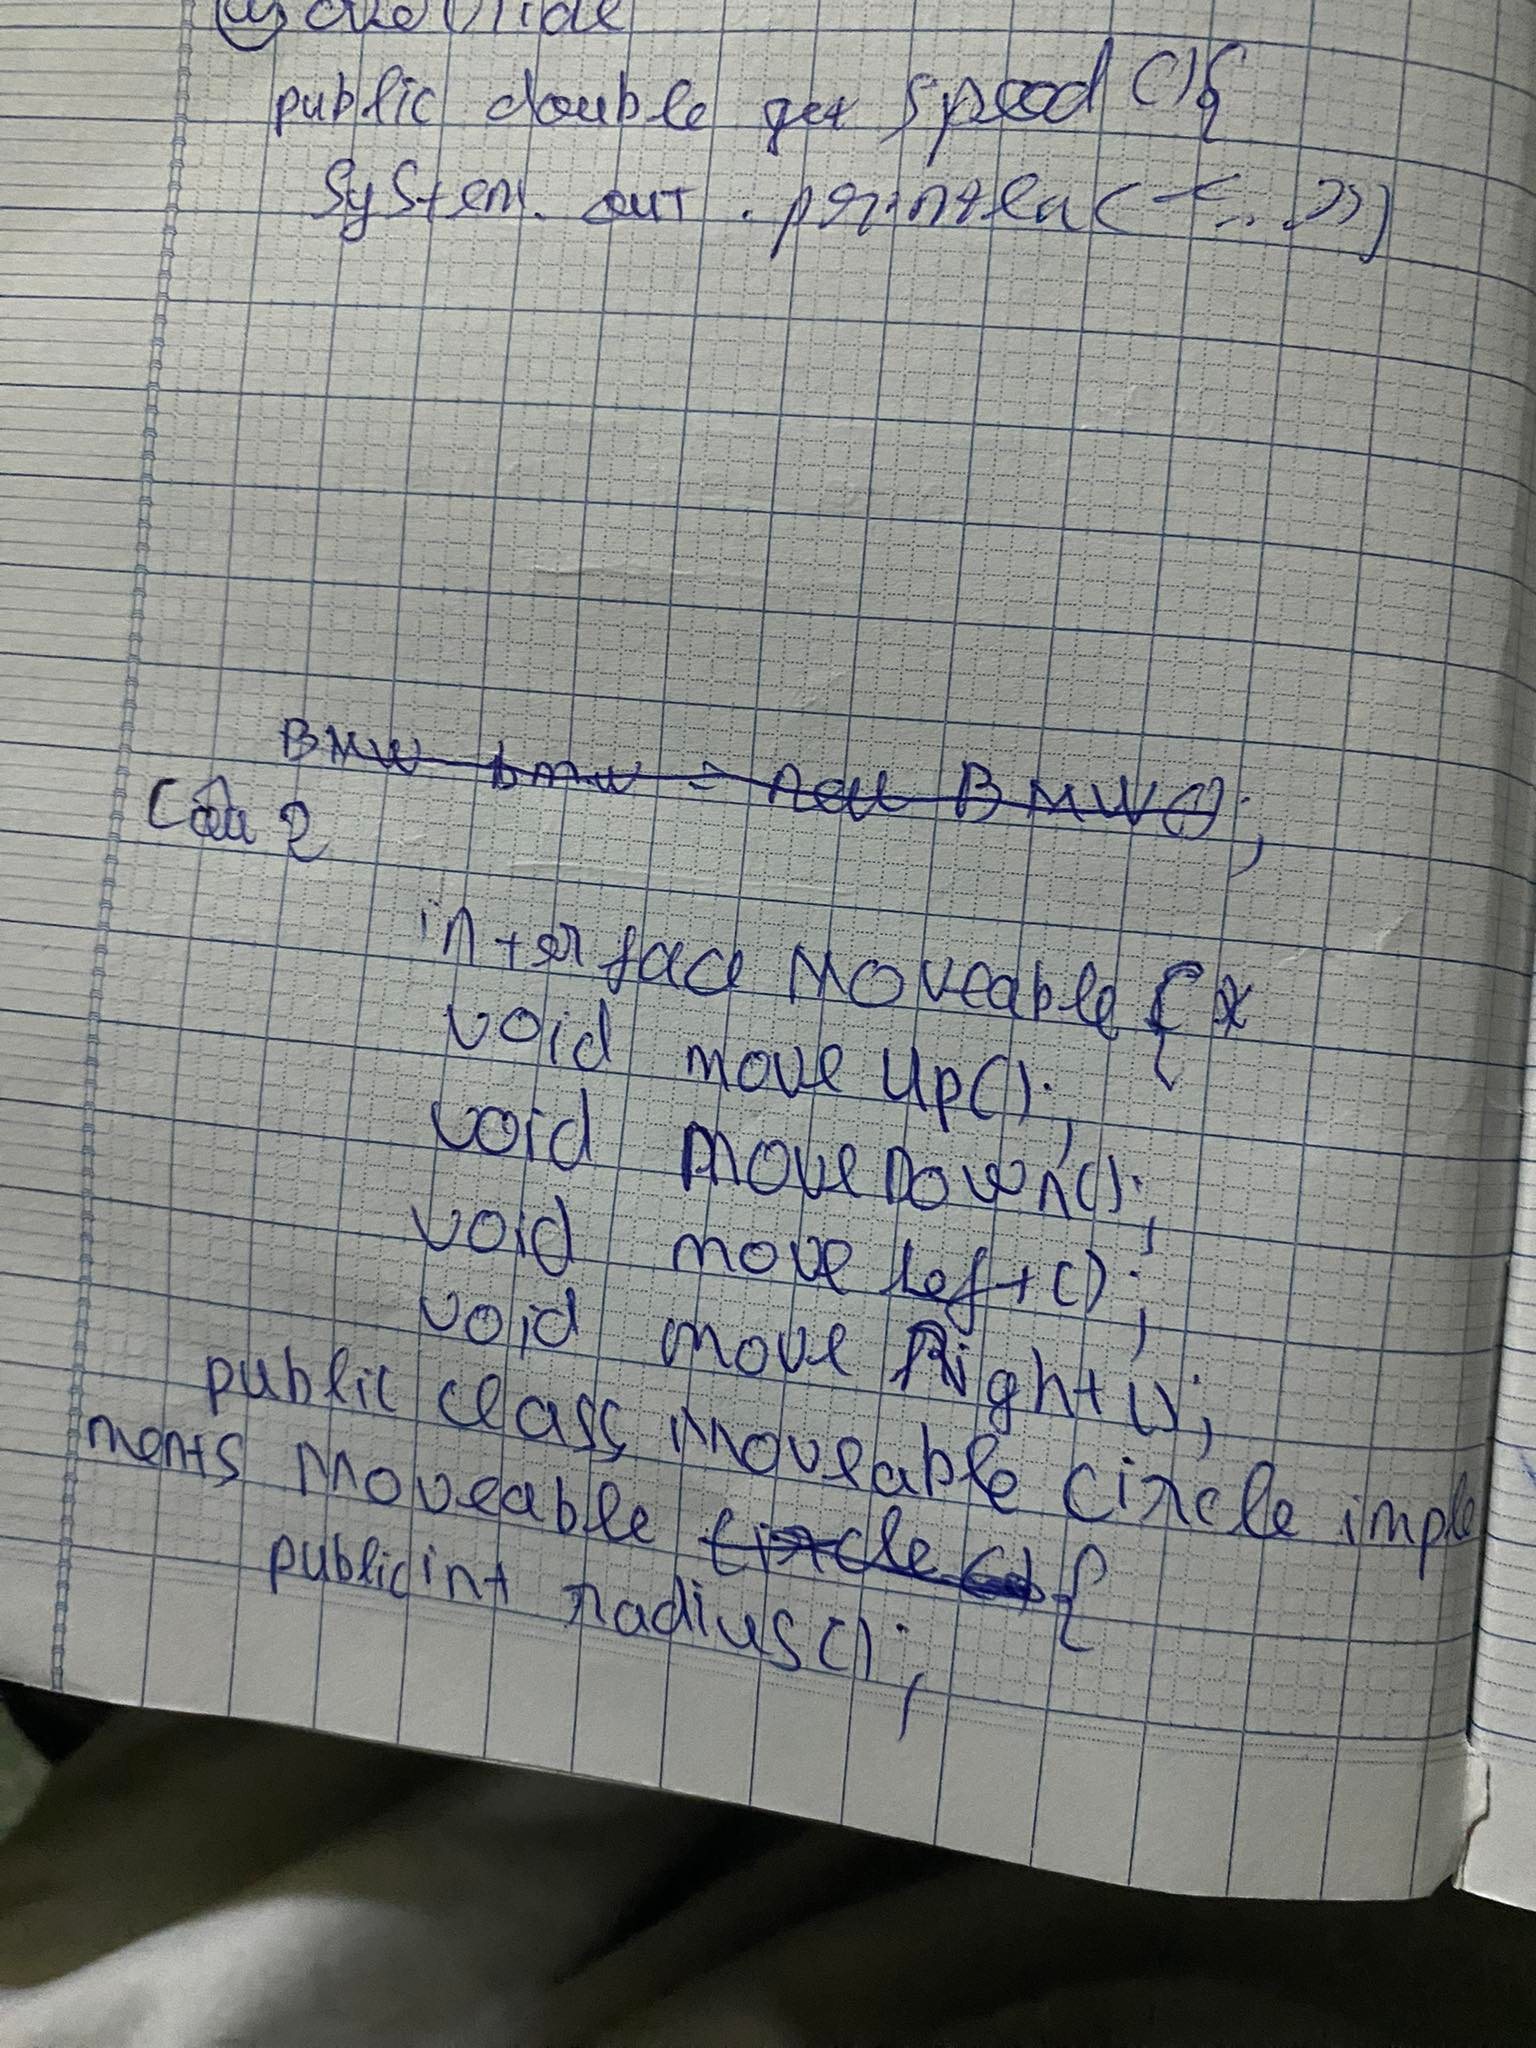 @override
public double get speed(){
System. out . println(<....>>)
BMW bmw = new BMW();
Câu 2
interface Moveable {
void move Up();
void moveDown();
void move left();
void move Right();
public class Moveable circle imple
ments Moveable circle {
public int radius();